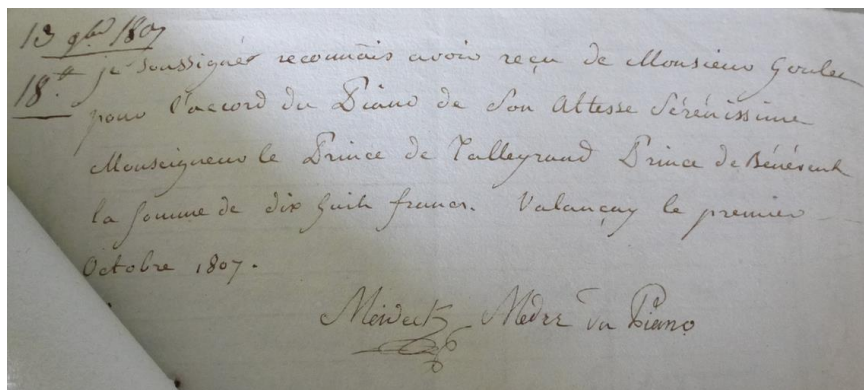 13 9bre 1807
18.# je soussigné reconnais avoir reçu de Monsieur Goulet
pour l'accord du Piano de Son Altesse Sérénissime
Monseigneur le Prince de Talleyrand Prince de Bénévent
la somme de dix huit francs. Valançay le premier
Octobre 1807.
Piano